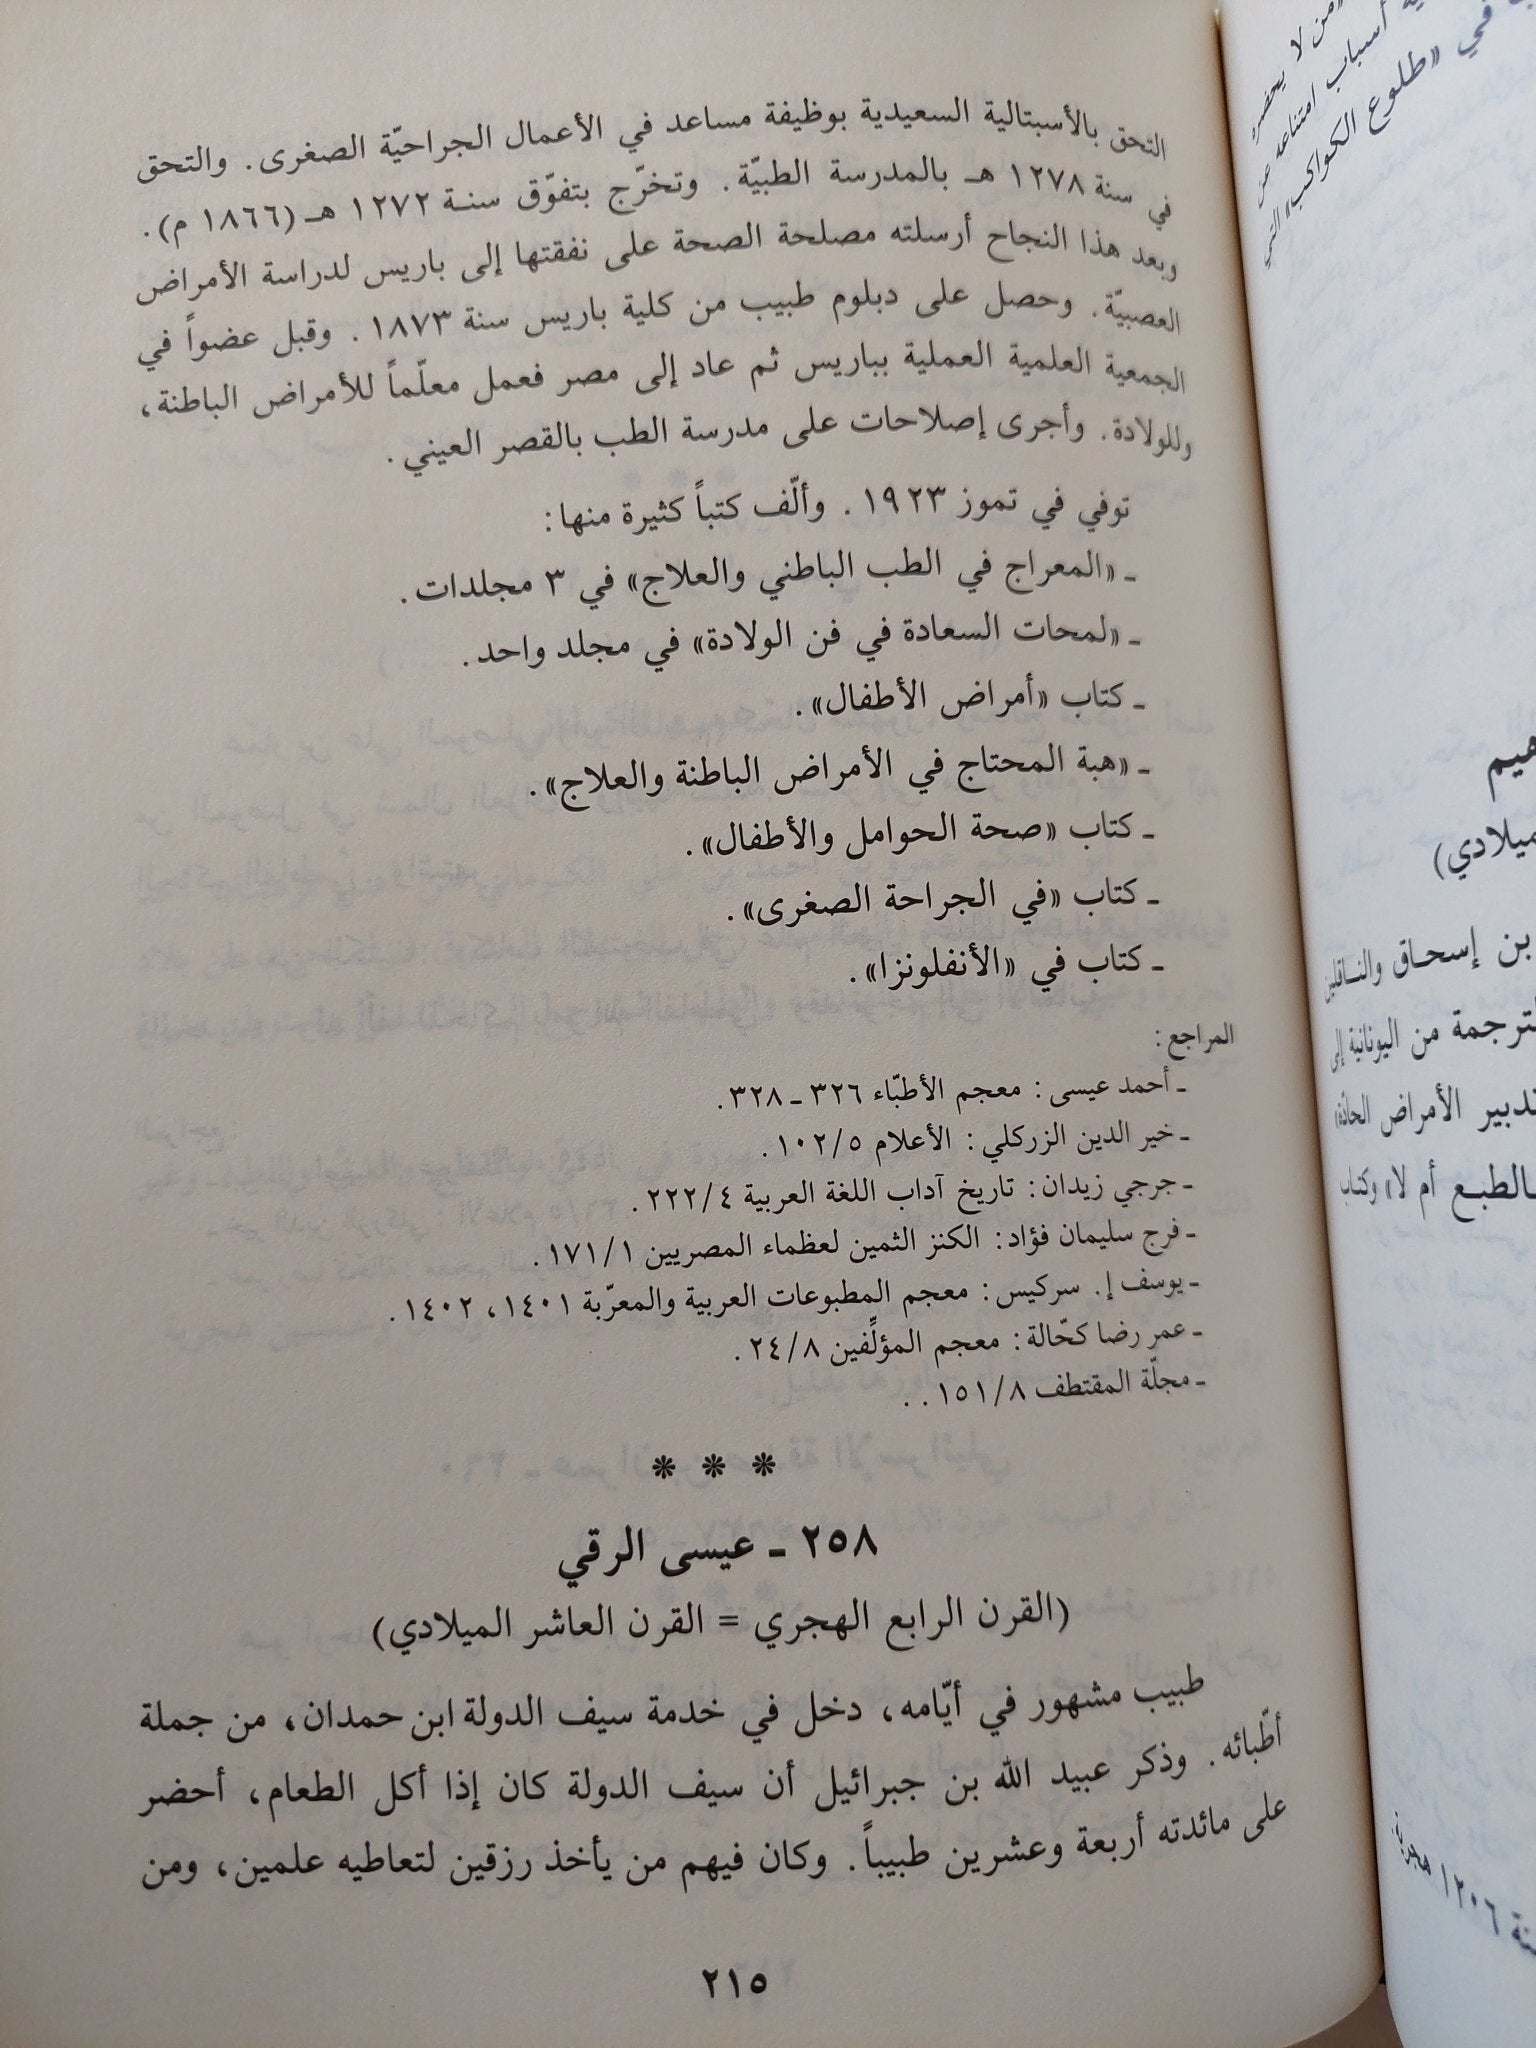 التحق بالأسبتالية السعيدية بوظيفة مساعد في الأعمال الجراحيّة الصغرى. والتحق
في سنة ١٢٧٨ هـ بالمدرسة الطبيّة. وتخرّج بتفوّق سنة ١٢٧٢ هـ (١٨٦٦ م).
وبعد هذا النجاح أرسلته مصلحة الصحة على نفقتها إلى باريس لدراسة الأمراض
العصبيّة. وحصل على دبلوم طبيب من كلية باريس سنة ١٨٧٣. وقبل عضواً في
الجمعية العلمية العملية بباريس ثم عاد إلى مصر فعمل معلّماً للأمراض الباطنة،
وللولادة. وأجرى إصلاحات على مدرسة الطب بالقصر العيني.
توفي في تموز ١٩٢٣. وألّف كتباً كثيرة منها:
ـ «المعراج في الطب الباطني والعلاج» في ٣ مجلدات.
ـ «لمحات السعادة في فن الولادة» في مجلد واحد.
ـ كتاب «أمراض الأطفال».
ـ «هبة المحتاج في الأمراض الباطنة والعلاج».
ـ كتاب «صحة الحوامل والأطفال».
ـ كتاب «في الجراحة الصغرى».
ـ كتاب في «الأنفلونزا».
المراجع:
ـ أحمد عيسى: معجم الأطبّاء ٣٢٦ ـ ٣٢٨.
ـ خير الدين الزركلي: الأعلام ١٠٢/٥.
ـ جرجي زيدان: تاريخ آداب اللغة العربية ٢٢٢/٤.
ـ فرج سليمان فؤاد: الكنز الثمين لعظماء المصريين ١٧١/١.
ـ يوسف إ. سركيس: معجم المطبوعات العربية والمعرّبة ١٤٠١، ١٤٠٢.
ـ عمر رضا كحّالة: معجم المؤلِّفين ٢٤/٨.
ـ مجلّة المقتطف ١٥١/٨..
* * *
٢٥٨ ـ عيسى الرقي
(القرن الرابع الهجري = القرن العاشر الميلادي)
طبيب مشهور في أيّامه، دخل في خدمة سيف الدولة ابن حمدان، من جملة
أطّبائه. وذكر عبيد الله بن جبرائيل أن سيف الدولة كان إذا أكل الطعام، أحضر
على مائدته أربعة وعشرين طبيباً. وكان فيهم من يأخذ رزقين لتعاطيه علمين، ومن
٢١٥
من لا يحضره
أسباب امتناعه عن
في «طلوع الكواكب» التي
ميلادي)
بن إسحاق والناقلين
من اليونانية إلى
الأمراض الحادّة»
أم لا» وكتاب
١٢٠٦ هجرية